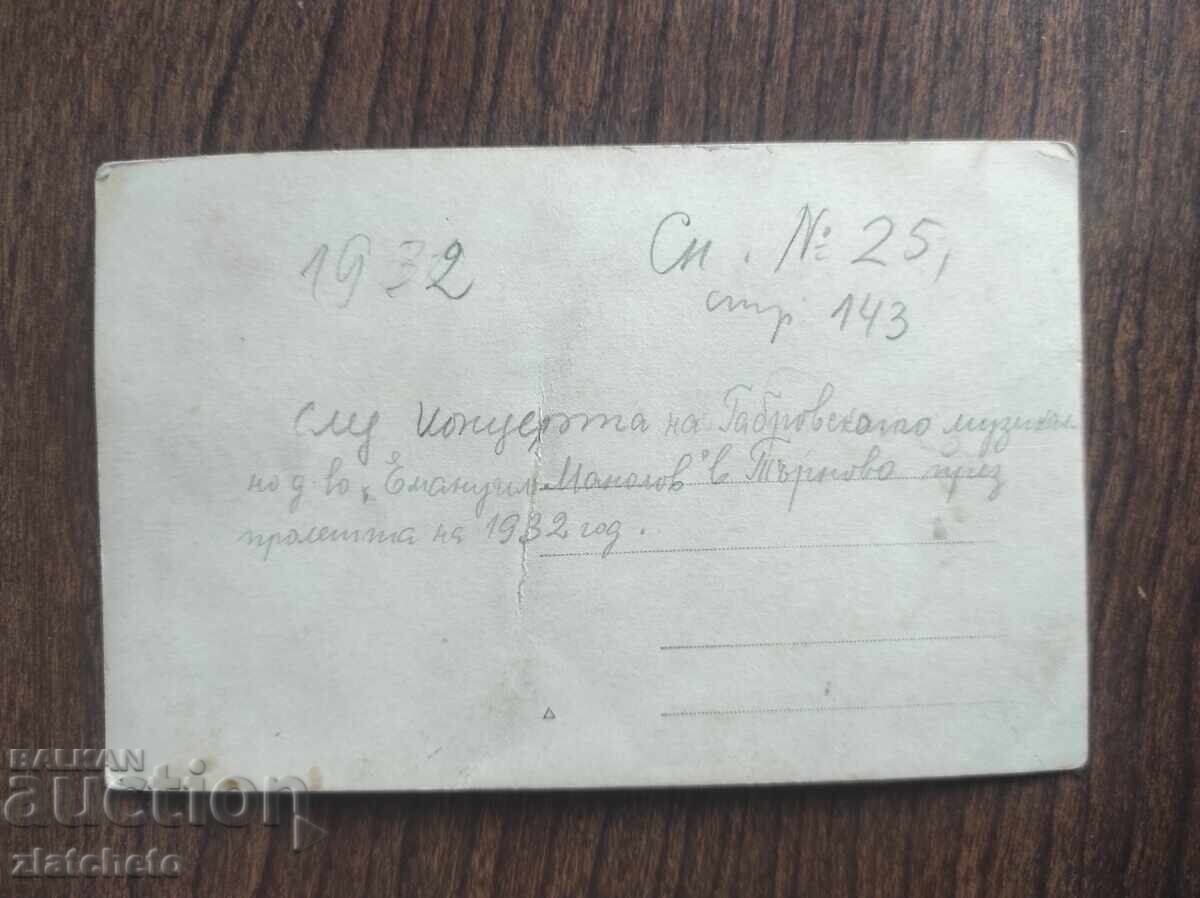 1932
Сн. № 25,
стр 143
След концерта на Габровското музикал
но д-во "Емануил Манолов" в Търново през
пролетта на 1932 год.
BALKAN
auction
zlatcheto